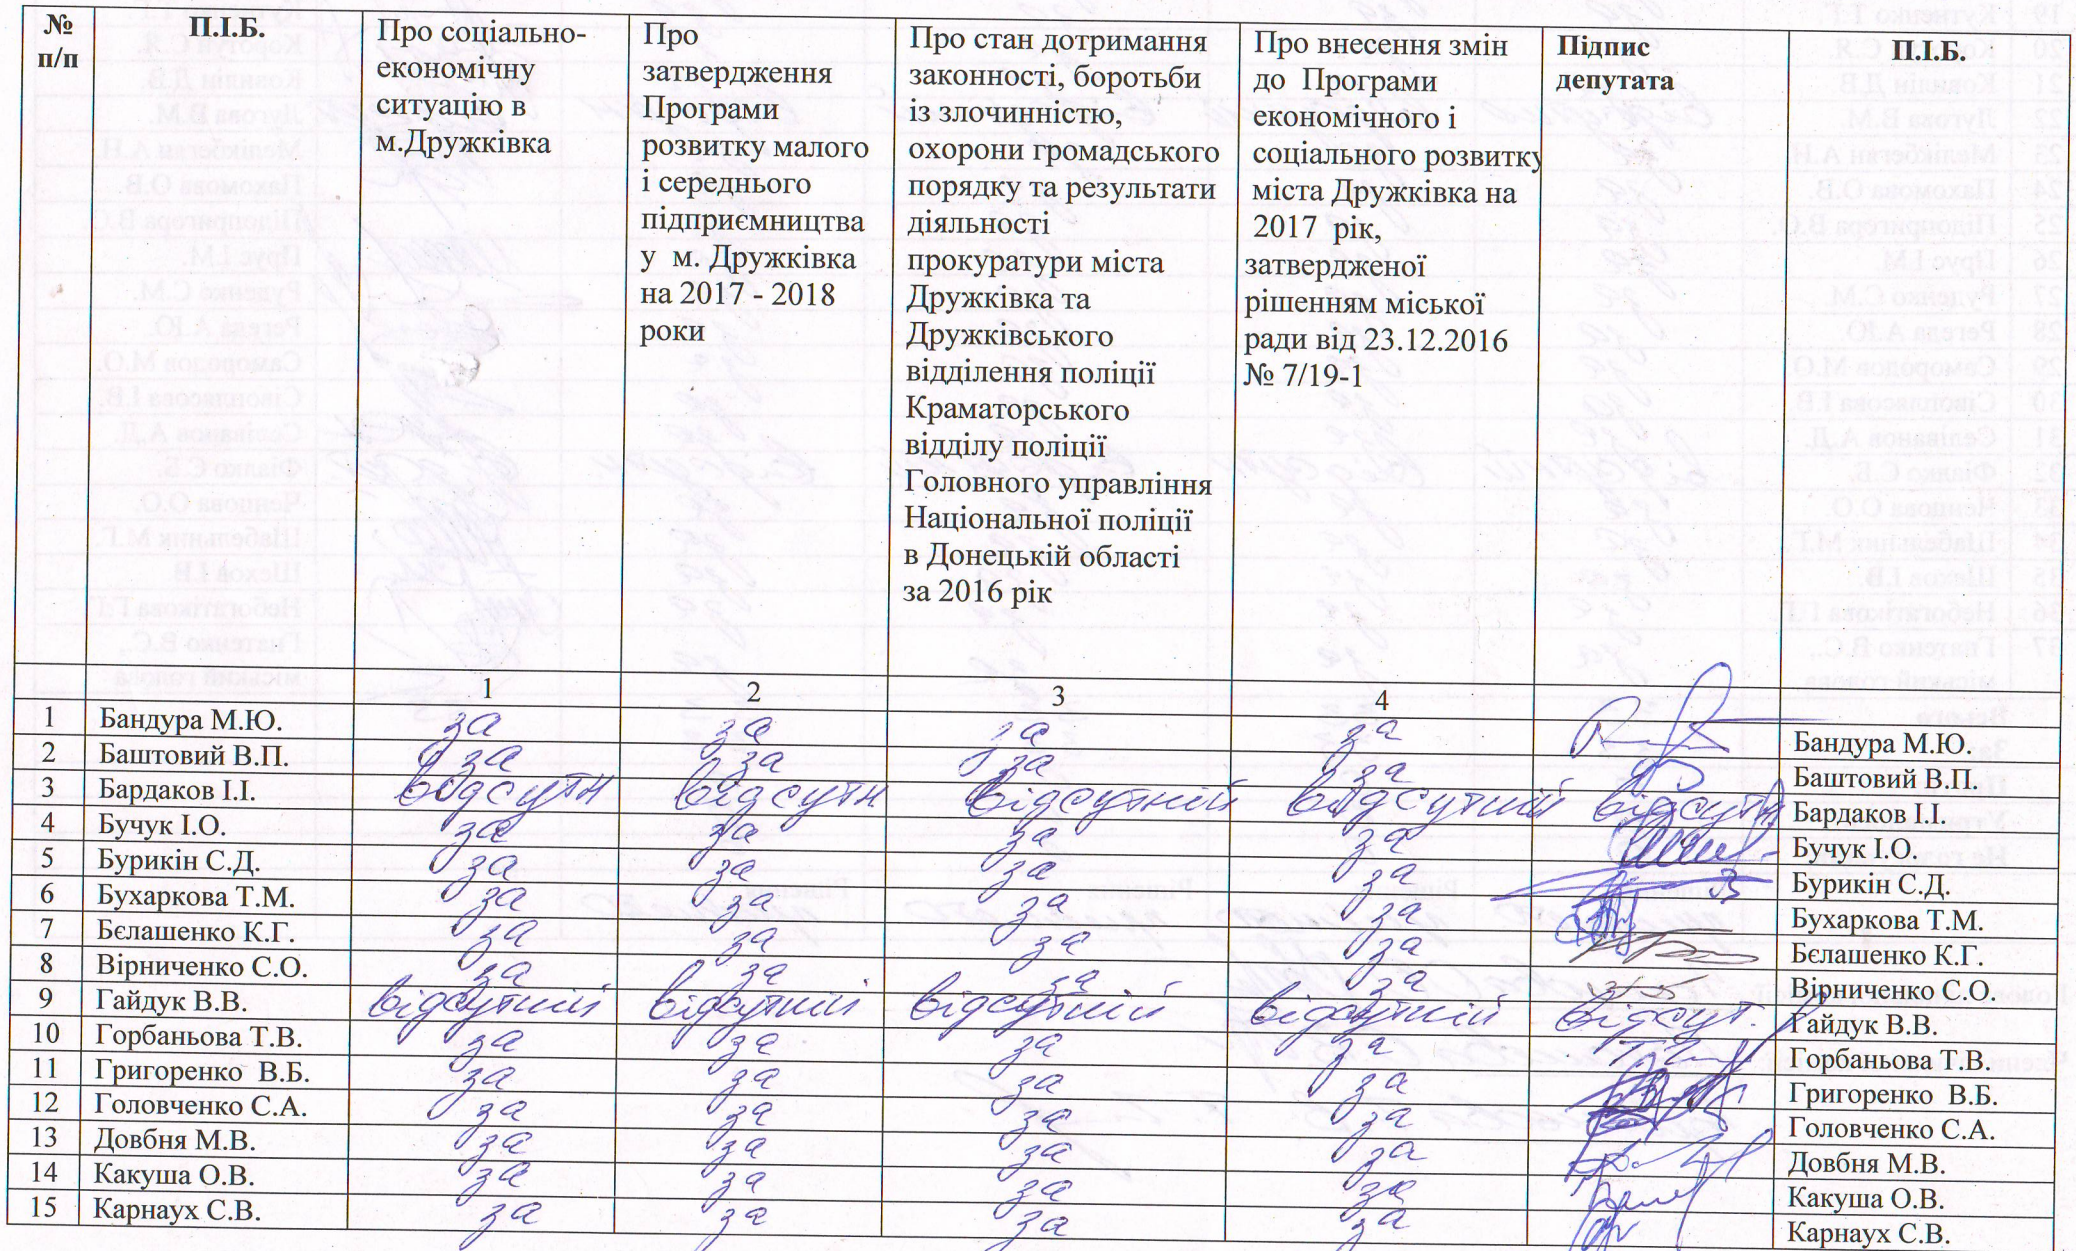 № п/п П.І.Б. Про соціально-економічну ситуацію в м.Дружківка Про затвердження Програми розвитку малого і середнього підприємництва у м. Дружківка на 2017 - 2018 роки Про стан дотримання законності, боротьби із злочинністю, охорони громадського порядку та результати діяльності прокуратури міста Дружківка та Дружківського відділення поліції Краматорського відділу поліції Головного управління Національної поліції в Донецькій області за 2016 рік Про внесення змін до Програми економічного і соціального розвитку міста Дружківка на 2017 рік, затвердженої рішенням міської ради від 23.12.2016 № 7/19-1 Підпис депутата П.І.Б.
1 2 3 4
1 Бандура М.Ю. за за за за Бандура М.Ю.
2 Баштовий В.П. за за за за Баштовий В.П.
3 Бардаков І.І. відсутн відсутн відсутній відсутній відсутн. Бардаков І.І.
4 Бучук І.О. за за за за Бучук І.О.
5 Бурикін С.Д. за за за за Бурикін С.Д.
6 Бухаркова Т.М. за за за за Бухаркова Т.М.
7 Бєлашенко К.Г. за за за за Бєлашенко К.Г.
8 Вірниченко С.О. за за за за Вірниченко С.О.
9 Гайдук В.В. відсутній відсутній відсутній відсутній відсут. Гайдук В.В.
10 Горбаньова Т.В. за за за за Горбаньова Т.В.
11 Григоренко В.Б. за за за за Григоренко В.Б.
12 Головченко С.А. за за за за Головченко С.А.
13 Довбня М.В. за за за за Довбня М.В.
14 Какуша О.В. за за за за Какуша О.В.
15 Карнаух С.В. за за за за Карнаух С.В.